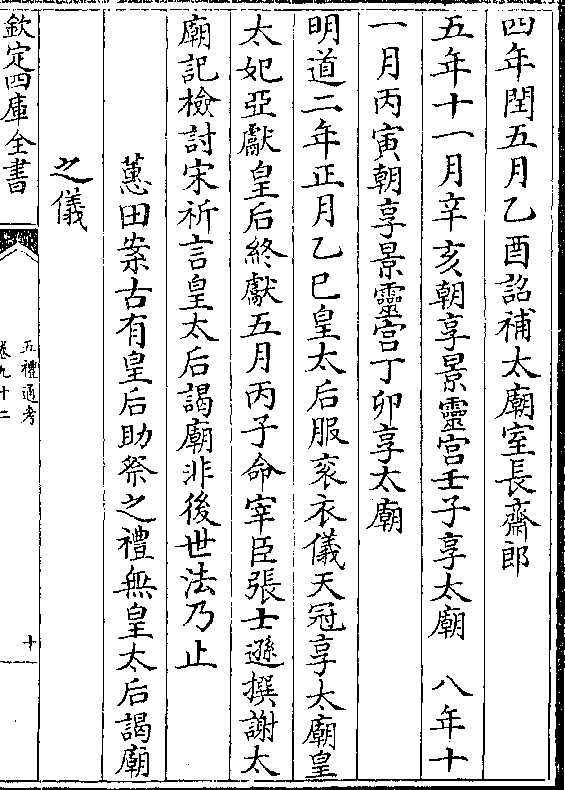 四年閏五月乙酉詔補太廟室長齋郎
五年十一月辛亥朝享景靈宫壬子享太廟　八年十
一月丙寅朝享景靈宫丁卯享太廟
明道二年正月乙巳皇太后服衮衣儀天冠享太廟皇
太妃亞獻皇后終獻五月丙子命宰臣張士遜撰謝太
廟記檢討宋祈言皇太后謁廟非後世法乃止
蕙田案古有皇后助祭之禮無皇太后謁廟
之儀
欽定四庫全書
五禮通考
卷九十二
十